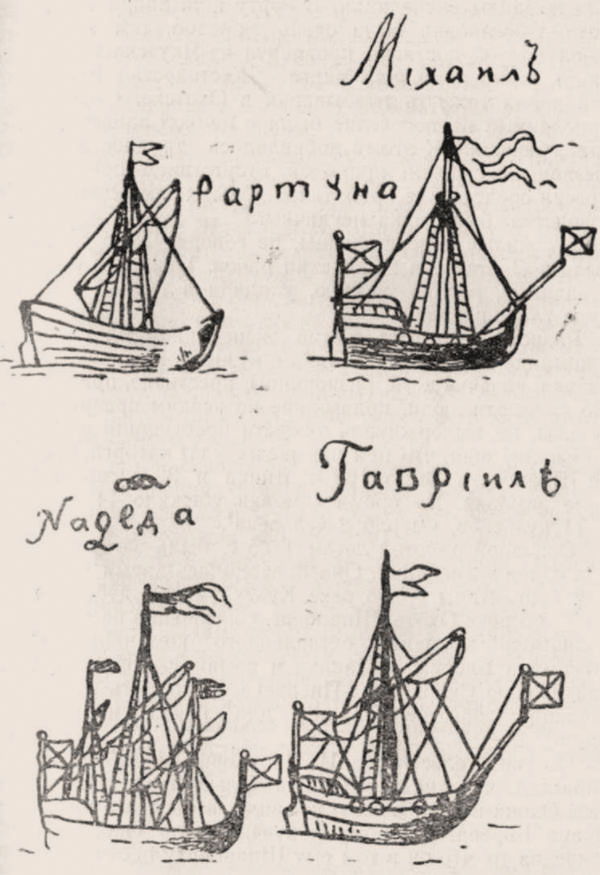 Міхаилъ
Фартуна
Гавріилъ
Nадежда